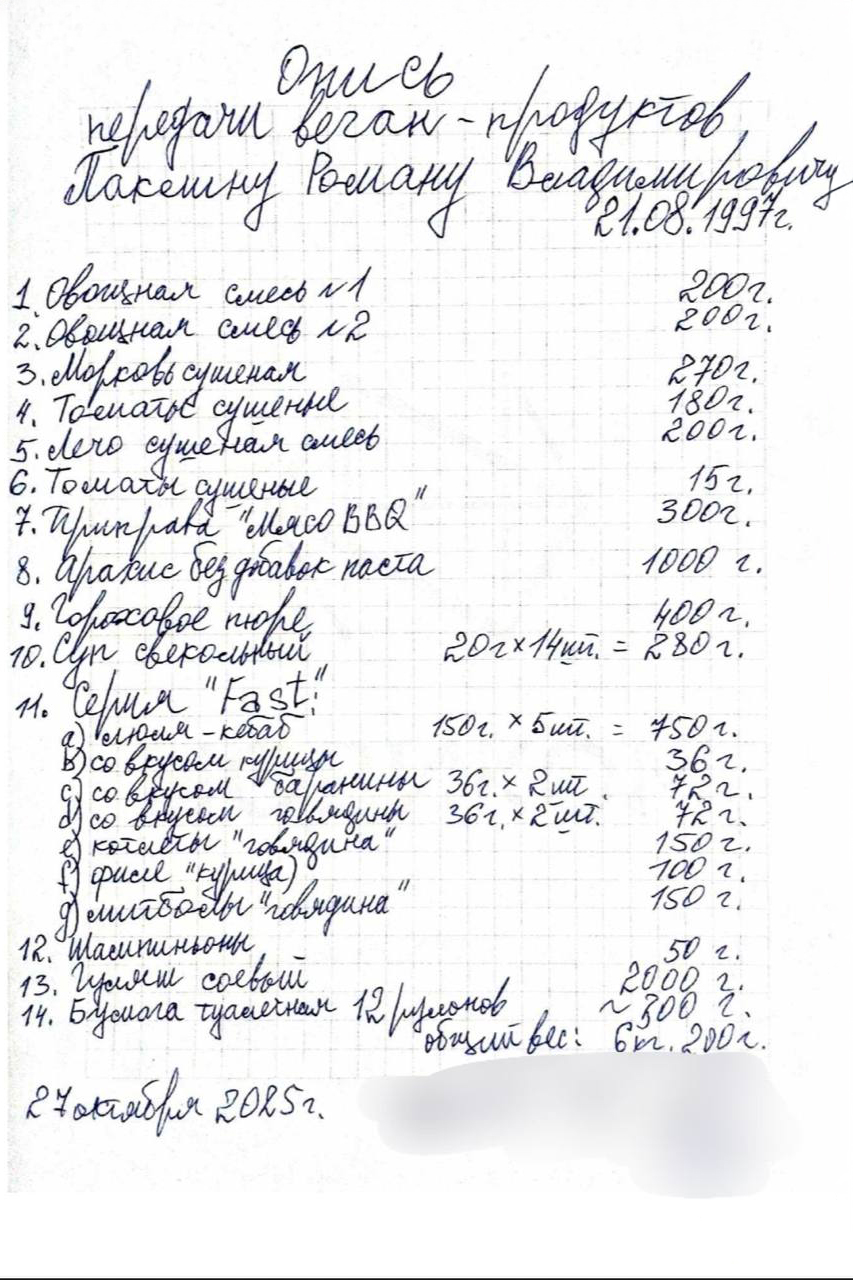 Опись
передачи веган-продуктов
Пакешну Роману Владимировичу
21.08.1997г.
1. Овощная смесь №1 200г.
2. Овощная смесь №2 200г.
3. Морковь сушеная 270г.
4. Томаты сушеные 180г.
5. Лечо сушеная смесь 200г.
6. Томаты сушеные 15г.
7. Приправа "Мясо BBQ" 300г.
8. Арахис без добавок паста 1000 г.
9. Гороховое пюре 400г.
10. Суп свекольный 20г×14шт. = 280г.
11. Серия "Fast":
a) люля-кебаб 150г. × 5шт. = 750г.
b) со вкусом курицы 36г.
c) со вкусом баранины 36г.× 2шт. 72г.
d) со вкусом говядины 36г.×2шт. 72г.
e) котлеты "говядина" 150г.
f) филе "курица) 100г.
g) митболы "говядина" 150г.
12. Шампиньоны 50 г.
13. Гуляш соевый 2000 г.
14. Бумага туалетная 12 рулонов ~300 г.
общий вес: 6кг. 200г.
27 октября 2025г.